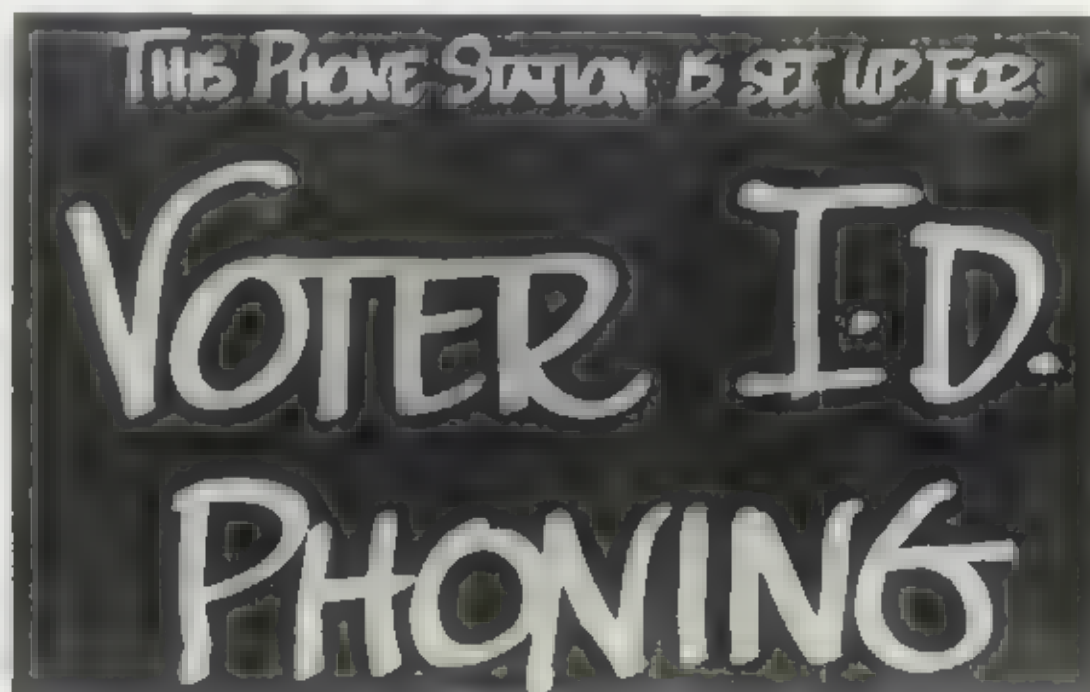 THIS PHONE STATION IS SET UP FOR
VOTER I.D.
PHONING